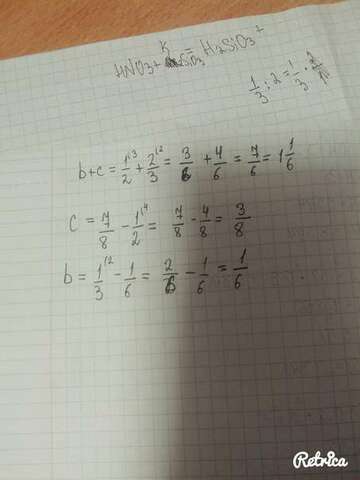 K
HNO3+ SiO3 = H2SiO3+
1/3 : 2 = 1/3 ·
b+c = 1/2 ¹³ + 2/3 ¹² = 3/6 + 4/6 = 7/6 = 1 1/6
c = 7/8 - 1/2 ¹⁴ = 7/8 - 4/8 = 3/8
b = 1/3 ¹² - 1/6 = 2/6 - 1/6 = 1/6
Retrica